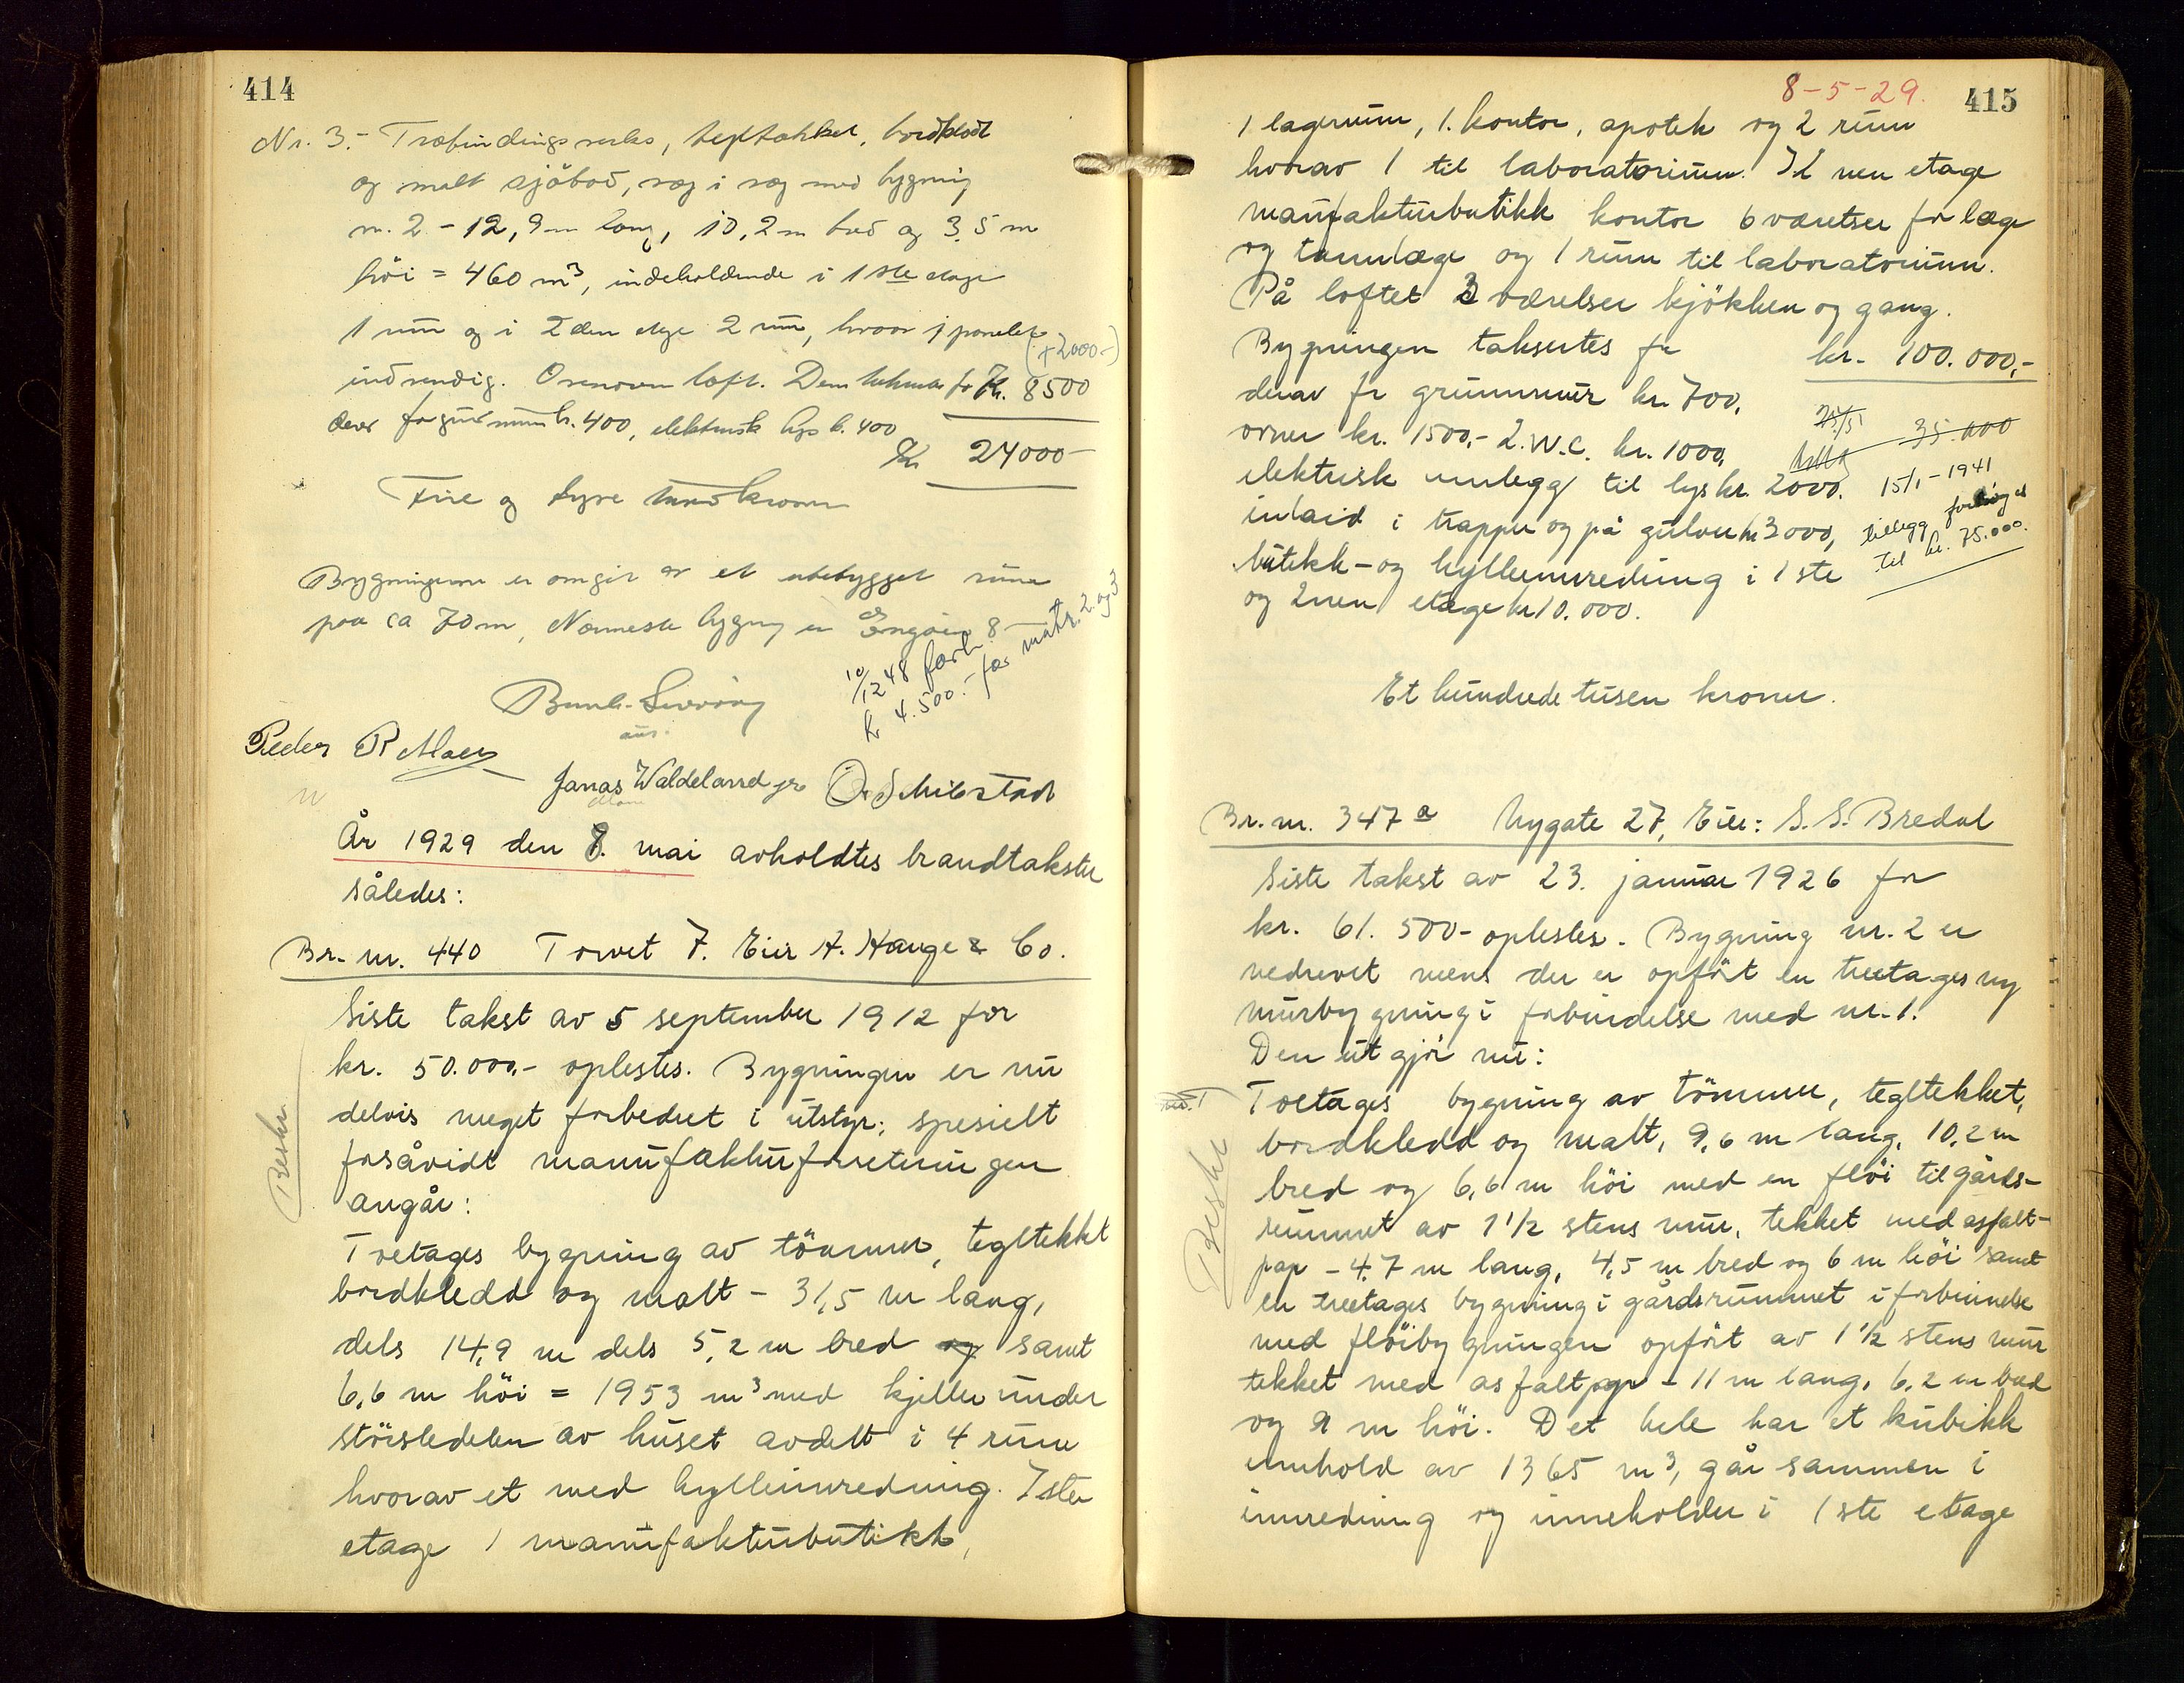 414
Nr. 3.- Træbindingsverks, tegltækket, bordklædt
og malt sjöbod, væg i væg med bygning
nr. 2 - 12,9 m lang, 10,2 m bred og 3,5 m
höi = 460 m³, indeholdende i 1ste etage
1 rum og i 2den etage 2 rum, hvorav 1 panelet
(+2000-)
indvendig. Ovenover loft. Den takseres for Kr. 8500
derav for grundmur kr. 400, elektrisk lys kr. 400
Kr 24000-
Fire og tyve tusend kroner
Bygningerne er omgit av et ubebygget rum
paa ca 70 m, Nærmeste bygning er Engöien 8
10/12 48 forh.
kr 4.500.- for matr. 2 og 3
Peder R Moen
Jonas Waldeland jr O. Schibstad
År 1929 den 8. mai avholdtes brandtakster
således:
Br. nr. 440 Torvet 7. Eier H. Hauge & Co.
Siste takst av 5 september 1912 for
kr. 50.000,- oplestes. Bygningen er nu
delvis meget forbedret i utstyr, spesielt
forsåvidt manufakturforretningen
angår:
Beskr.
Toetages bygning av tömmer, tegltekket
bordkledd og malt - 31,5 m lang,
dels 14,9 m dels 5,2 m bred og samt
6,6 m höi = 1953 m³ med kjeller under
störstedelen av huset avdelt i 4 rum
hvorav et med hylleinredning. I ste
etage 1 manufakturbutikk,
8-5-29.
415
1 lagerrum, 1. kontor, apotek og 2 rum
hvorav 1 til laboratorium. I 2 nen etage
manufakturbutikk kontor 6 værelser for læge
og tannlæge og 1 rum til laboratorium.
På loftet 3 værelser kjökken og gang.
Bygningen taksertes for kr. 100.000,-
derav for grunnmur kr. 700,
ovner kr. 1500,- 2. W.C. kr. 1000,
35.000
elektrisk innlegg til lys kr. 2000.
15/1-1941
inlaid i trapper og på gulver kr 3000,
tillegg forhöiet
til kr. 75.000.
butikk- og hylleinnredning i 1ste
og 2nen etage kr 10.000.
Et hundrede tusen kroner.
Br. nr. 347a Nygate 27, Eier: S. S. Bredal
Siste takst av 23. januar 1926 for
kr. 61.500- oplestes. Bygning nr. 2 er
nedrevet mens der er opfört en treetages ny
murbygning i forbindelse med nr. 1.
Den utgjör nu:
nr. 1
Toetages bygning av tömmer, tegltekket,
bordkledd og malt, 9,6 m lang, 10,2 m
Beskr
bred og 6,6 m höi med en flöi til gårds-
rummet av 1 1/2 stens mur, tekket med asfalt-
pap - 4,7 m lang, 4,5 m bred og 6 m höi samt
en treetages bygning i gårdsrummet i forbinnelse
med flöibygningen opfört av 1 1/2 stens mur
tekket med asfaltpap - 11 m lang, 6,2 m bred
og 9 m höi. Det hele har et kubikk
innhold av 1365 m³, går sammen i
innredning og inneholder i 1 ste etage